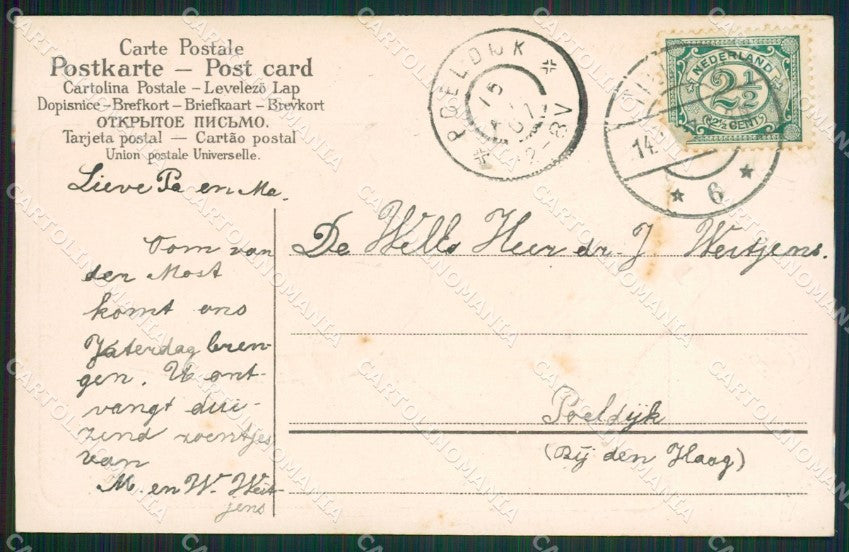 Carte Postale
Postkarte – Post card
Cartolina Postale – Levelező Lap
Dopisnice – Brefkort – Briefkaart – Brevkort
ОТКРЫТОЕ ПИСЬМО.
Tarjeta postal — Cartão postal
Union postale Universelle.
POELDIJK
15
07
2-8V
NEDERLAND
2½
(2½ CENT)
14
6
Lieve Pa en Ma.
Oom van
der Most
komt ons
Zaterdag bren-
gen. U ont-
vangt dui-
zend zoentjes
van
M. en W. Weit-
jens
De Well. Heer dr. J. Weitjens.
Poeldijk
(Bij den Haag)
CARTOLINOMANIA